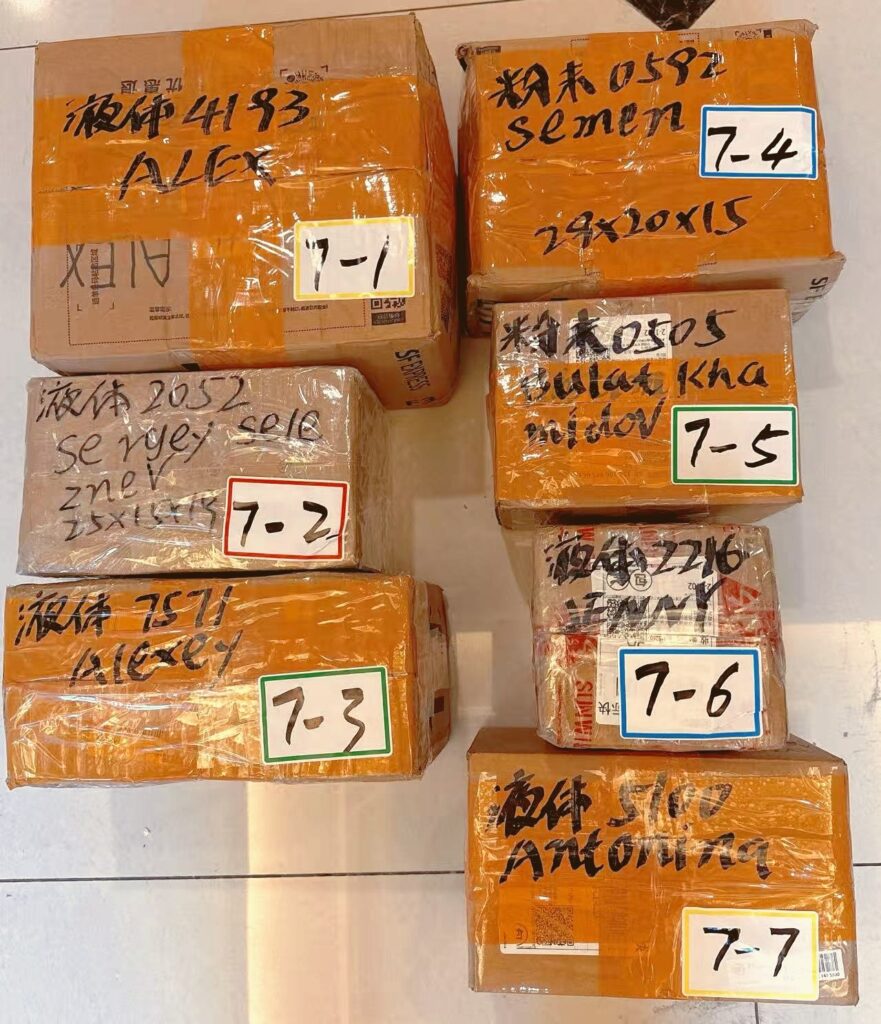 优思退
液体 4193
ALEX
7-1
ALEX
SF EXPRESS
液体 2052
sergey sele
znev
25x15x15
7-2
液体 7571
Alexey
7-3
粉末 0592
semen
7-4
29x20x15
SF
粉末 0505
Bulat Kha
midov
7-5
液体 2216
JENNY
7-6
液体 5100
Antonina
7-7